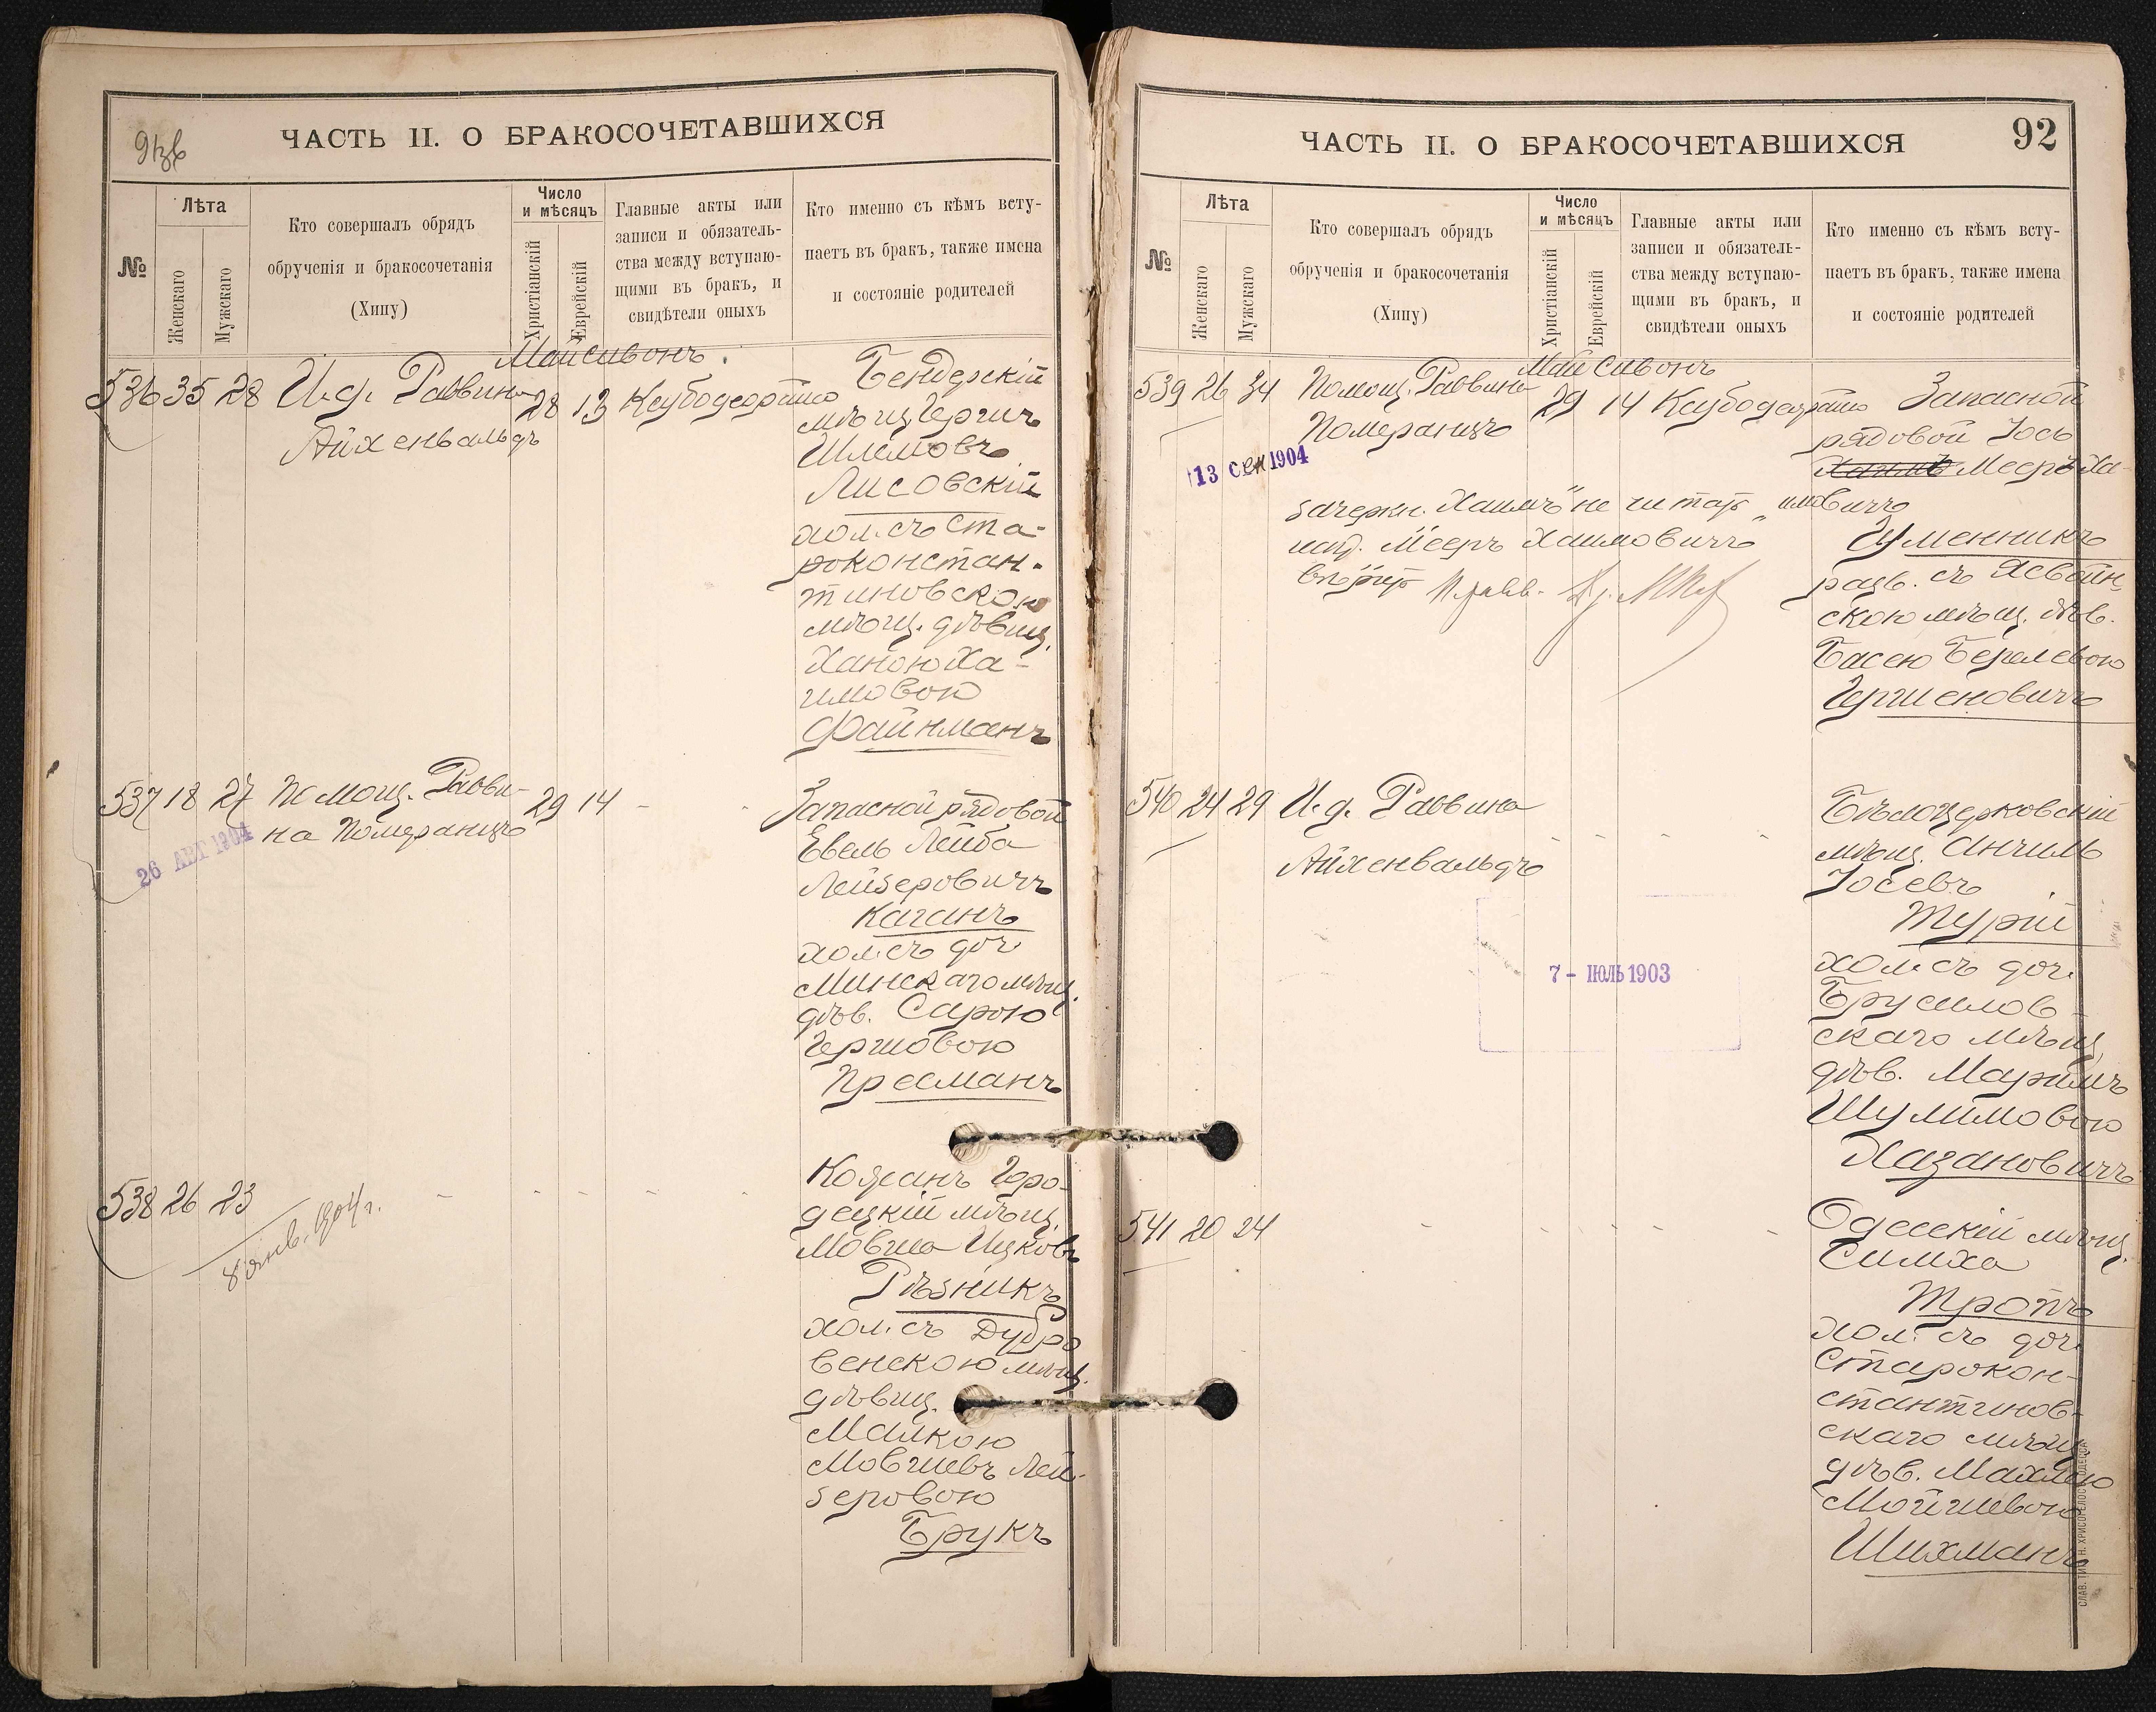 91об
ЧАСТЬ II. О БРАКОСОЧЕТАВШИХСЯ
№
Лѣта
Женскаго
Мужскаго
Кто совершалъ обрядъ
обрученія и бракосочетанія
(Хипу)
Число
и мѣсяцъ
Христіанскій
Еврейскій
Главные акты или
записи и обязатель-
ства между вступаю-
щими въ бракъ, и
свидѣтели оныхъ
Кто именно съ кѣмъ всту-
паетъ въ бракъ, также имена
и состояніе родителей
Май Сивонъ
536 35 28 И.д. Раввина 28 13
Айхенвальдъ
Бендерскій
мѣщ. Гершъ
Шлемовъ
Лисовскій
хол. съ Ста-
роконстан-
тиновскою
мѣщ. дѣвиц.
Ханою Ха-
имовою
Файнманъ
537 18 27 Помощ. Равви- 29 14 - -
на Померанцъ
26 АВГ 1904
Запасной рядовой
Евель Лейба
Лейзеровичъ
Каганъ
хол. съ доч.
Минскаго мѣщ.
дѣв. Сарою
Гершовою
Пресманъ
538 26 23 - - - - -
8 янв. 1904 г.
Городецкій мѣщ.
Мовша Ицковъ
Рѣзникъ
хол. съ Дубро
венскою мѣщ.
дѣвиц.
Малкою
Мовшевъ Лей-
зеровою
Брукъ
ЧАСТЬ II. О БРАКОСОЧЕТАВШИХСЯ
92
№
Лѣта
Женскаго
Мужскаго
Кто совершалъ обрядъ
обрученія и бракосочетанія
(Хипу)
Число
и мѣсяцъ
Христіанскій
Еврейскій
Главные акты или
записи и обязатель-
ства между вступаю-
щими въ бракъ, и
свидѣтели оныхъ
Кто именно съ кѣмъ всту-
паетъ въ бракъ, также имена
и состояніе родителей
Май Сивонъ
539 26 34 Помощ. Раввина 29 14
Померанцъ
13 СЕН 1904
зачеркн. „Хаимъ" не читать
над. „Мееръ Хаимовичъ"
Запасной
рядовой Іось
Хаимъ Мееръ Ха-
имовичъ
Гуменникъ
разв. съ Ясвоин-
скою мѣщ. дѣв.
Басею Берелевою
Гершеновичъ
540 24 29 И.д. Раввина - - - -
Айхенвальдъ
7 - ИЮЛЬ 1903
Бѣлоцерковскій
мѣщ. Анчиль
Іосевъ
Турій
хол. съ доч.
Брусилов-
скаго мѣщ.
дѣв. Маримъ
Шулимовою
Хазановичъ
541 20 24 - - - - -
Одесскій мѣщ.
Симха
Тропъ
хол. съ доч.
Старокон-
стантинов-
скаго мѣщ.
дѣв. Махлею
Мойшевою
Шихманъ